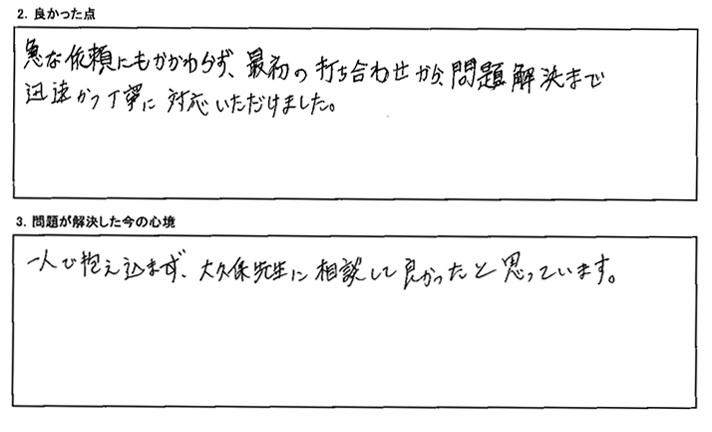 2. 良かった点
急な依頼にもかかわらず、最初の打ち合わせから問題解決まで
迅速かつ丁寧に対応いただけました。
3. 問題が解決した今の心境
一人で抱え込まず、大久保先生に相談して良かったと思っています。